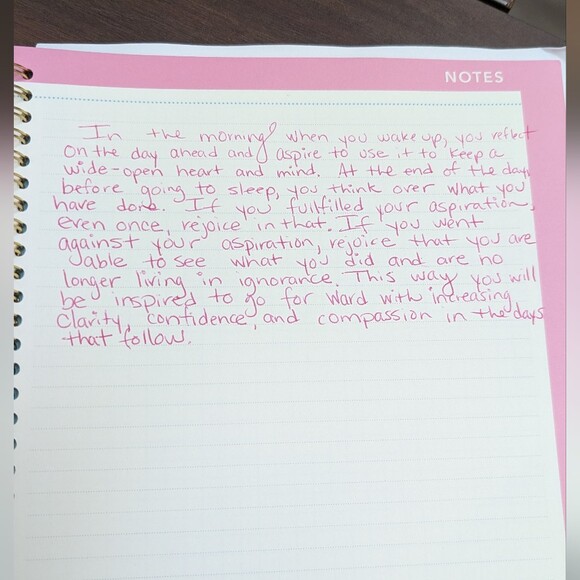 NOTES
In the morning when you wake up, you reflect
on the day ahead and aspire to use it to keep a
wide-open heart and mind. At the end of the day,
before going to sleep, you think over what you
have done. If you fulfilled your aspiration,
even once, rejoice in that. If you went
against your aspiration, rejoice that you are
able to see what you did and are no
longer living in ignorance. This way you will
be inspired to go for ward with increasing
clarity, confidence, and compassion in the days
that follow.